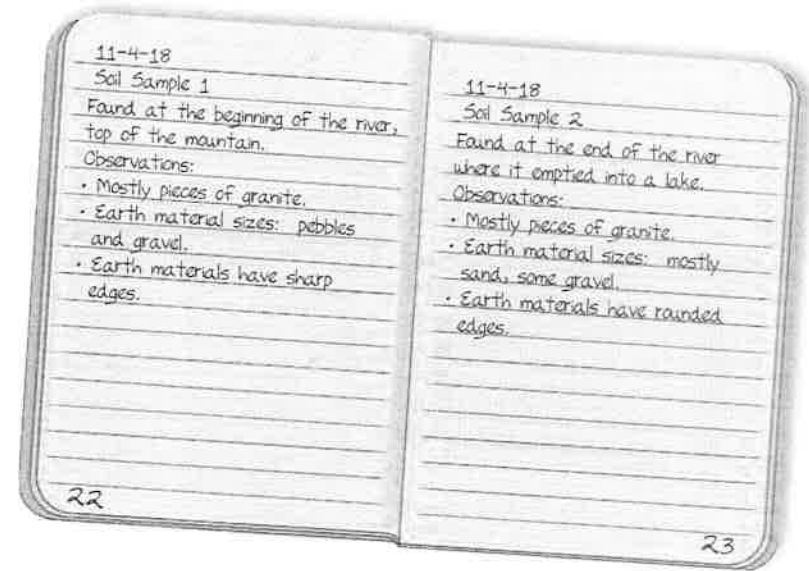 11-4-18
Soil Sample 1
Found at the beginning of the river,
top of the mountain.
Observations:
• Mostly pieces of granite.
• Earth material sizes: pebbles
and gravel.
• Earth materials have sharp
edges.
22
11-4-18
Soil Sample 2
Found at the end of the river
where it emptied into a lake.
Observations:
• Mostly pieces of granite.
• Earth material sizes: mostly
sand, some gravel.
• Earth materials have rounded
edges.
23